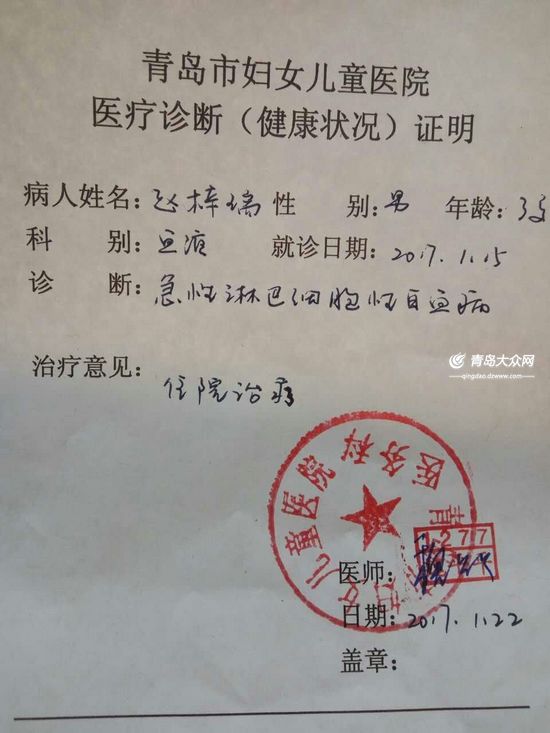 青岛市妇女儿童医院
医疗诊断（健康状况）证明
病人姓名：赵梓瑞 性 别：男 年龄：3岁
科 别：血液 就诊日期：2017.1.15
诊 断：急性淋巴细胞性白血病
青岛大众网
qingdao.dzwww.com
治疗意见：
住院治疗
青 妇女儿童医院 医务科
277
医师：
日期：2017.1.22
盖章：